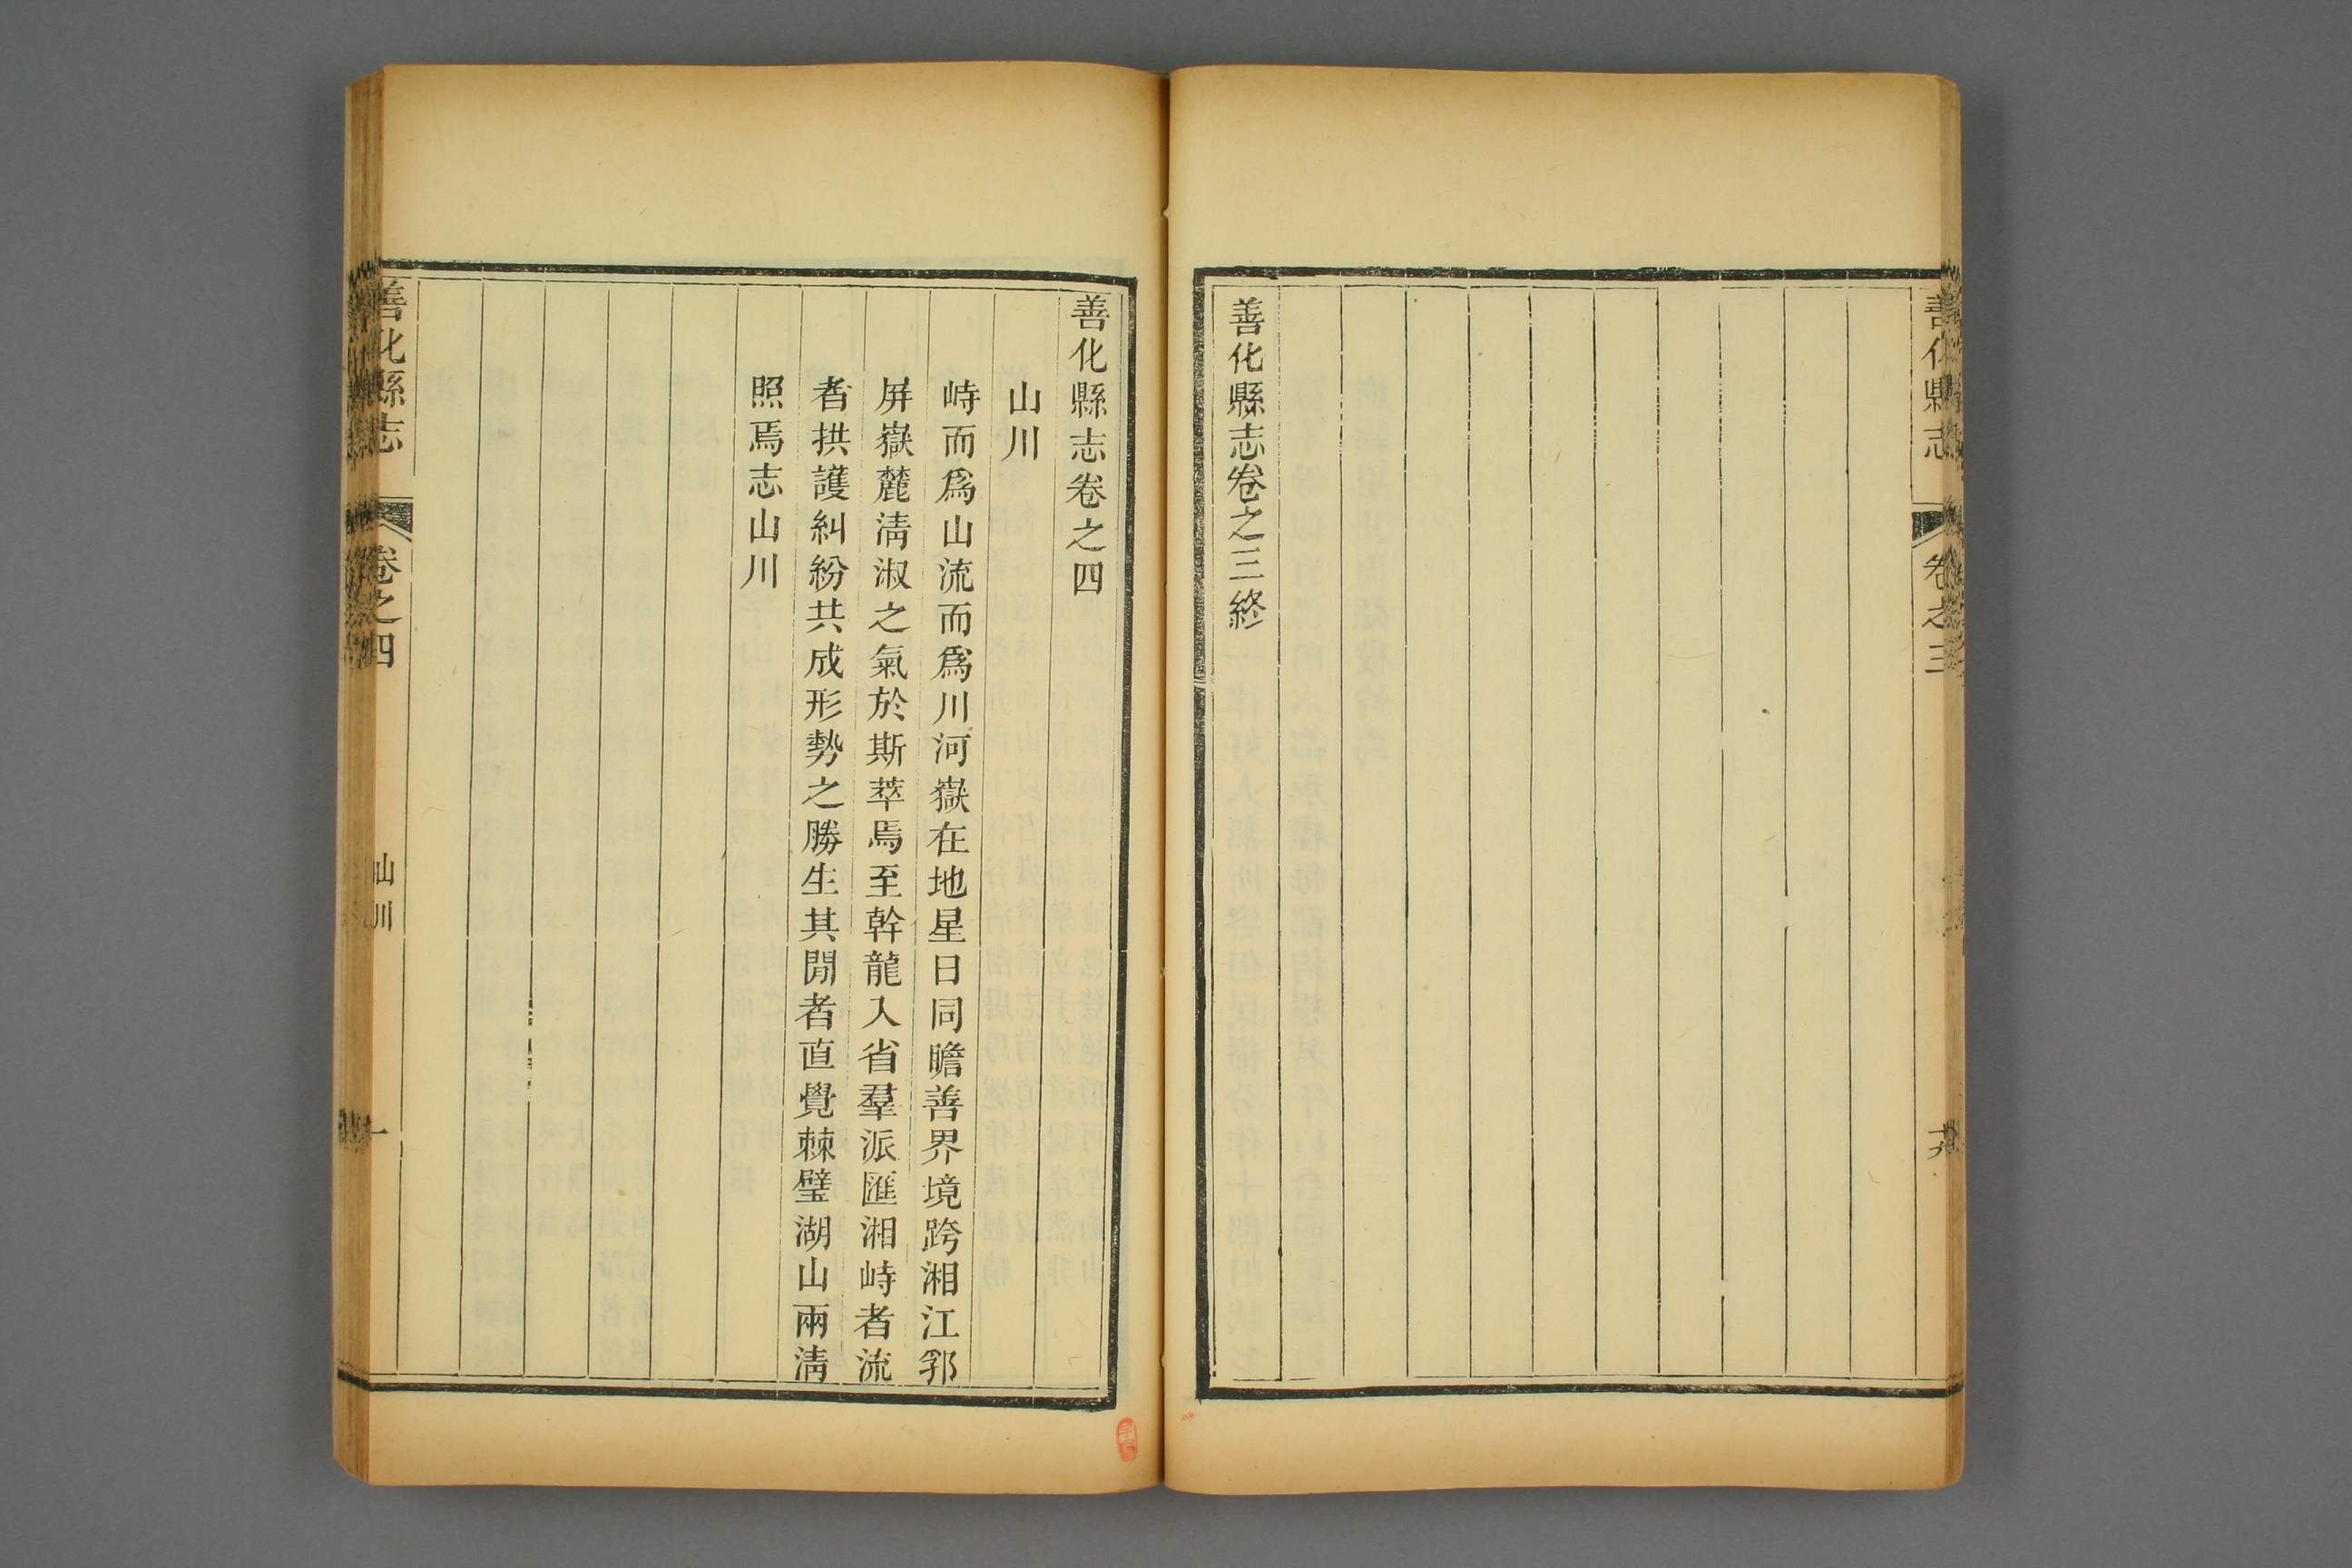 善化縣志
卷之三
善化縣志卷之三終
善化縣志卷之四
山川
峙而爲山流而爲川河嶽在地星日同瞻善界境跨湘江郛
屏嶽麓淸淑之氣於斯萃焉至幹龍入省羣派匯湘峙者流
者拱護糾紛共成形勢之勝生其閒者直覺棘璧湖山兩淸
照焉志山川
善化縣志
卷之四
山川
一